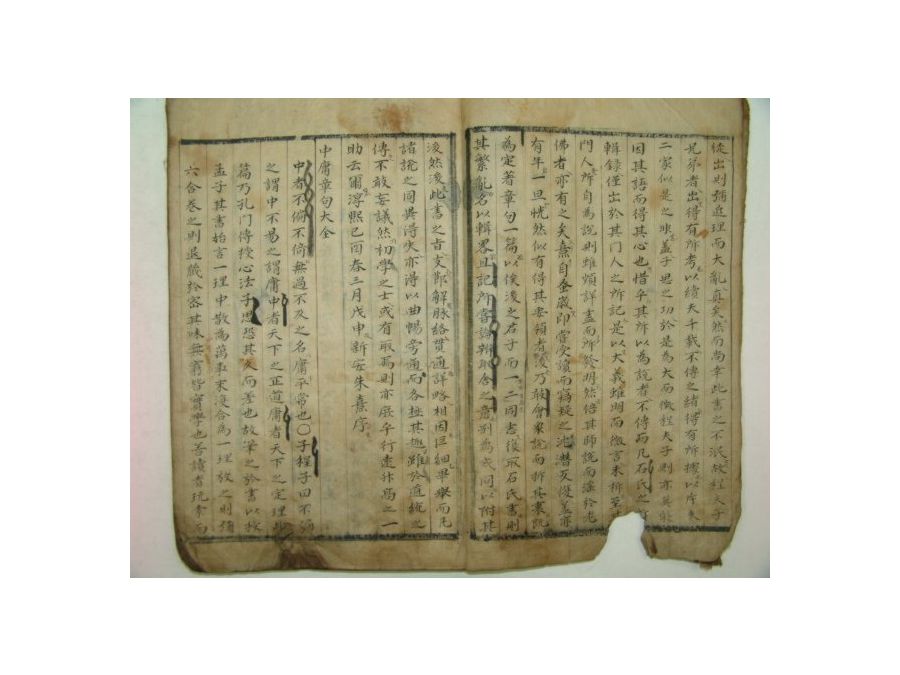 徒出則彌近理而大亂真矣然而尚幸此書之不泯故程夫子
兄弟者出得有所考以續夫千載不傳之緒得有所據以斥夫
二家似是之非盖子思之功於是為大而微程夫子則亦莫能
因其語而得其心也惜乎其所以為說者不傳而凡石氏之
輯錄僅出於其門人之所記是以大義雖明而微言未析至
門人所自為說則雖頗詳盡而所發明然倍其師說而淫於老
佛者亦有之矣熹自蚤歲即嘗受讀而竊疑之沈潛反復盖亦
有年一旦恍然似有得其要領者後乃敢會衆說而折其衷既
為定著章句一篇以俟後之君子而一二同志復取石氏書刪
其繁亂名以輯畧且記所嘗論辨取舍之意別為或問以附其
後然後此書之旨支解脉絡貫通詳略相因巨細畢擧而凡
諸說之同異得失亦得以曲暢旁通而各極其趣雖於道統之
傳不敢妄議然初學之士或有取焉則亦庶乎行遠升高之一
助云爾淳熙己酉春三月戊申新安朱熹序
中庸章句大全
中者不偏不倚無過不及之名庸平常也〇子程子曰不偏
之謂中不易之謂庸中者天下之正道庸者天下之定理此
篇乃孔門傳授心法子思恐其久而差也故筆之於書以授
孟子其書始言一理中散為萬事末復合為一理放之則彌
六合卷之則退藏於密其味無窮皆實學也善讀者玩索而